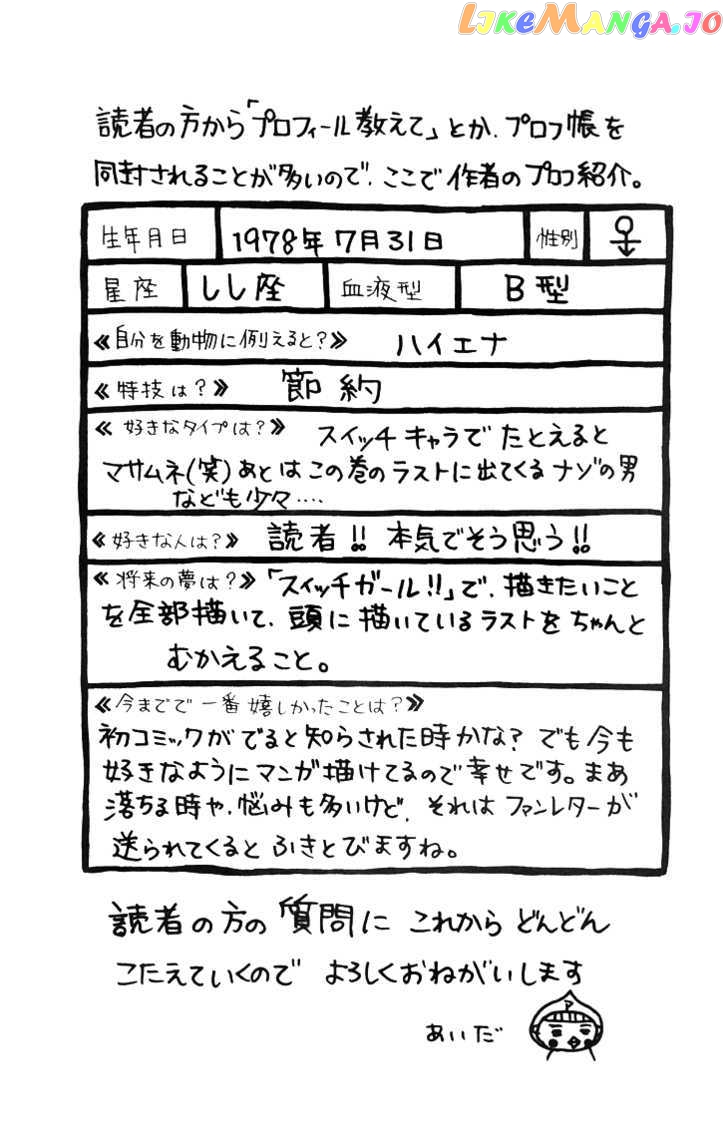 LIKEMANGA.IO
読者の方から「プロフィール教えて」とか、プロフ帳を
同封されることが多いので、ここで作者のプロフ紹介。
生年月日 1978年7月31日 性別 ♀
星座 しし座 血液型 B型
≪自分を動物に例えると?≫ ハイエナ
≪特技は?≫ 節約
≪好きなタイプは?≫ スイッチキャラでたとえると
マサムネ(笑)あとはこの巻のラストに出てくるナゾの男
なども少々‥‥
≪好きな人は?≫ 読者!! 本気でそう思う!!
≪将来の夢は?≫「スイッチガール!!」で、描きたいこと
を全部描いて、頭に描いているラストをちゃんと
むかえること。
≪今までで一番嬉しかったことは?≫
初コミックがでると知らされた時かな? でも今も
好きなようにマンガ描けてるので幸せです。まあ
落ちる時や、悩みも多いけど、それはファンレターが
送られてくるとふきとびますね。
読者の方の質問にこれからどんどん
こたえていくのでよろしくおねがいします
あいだ
ア